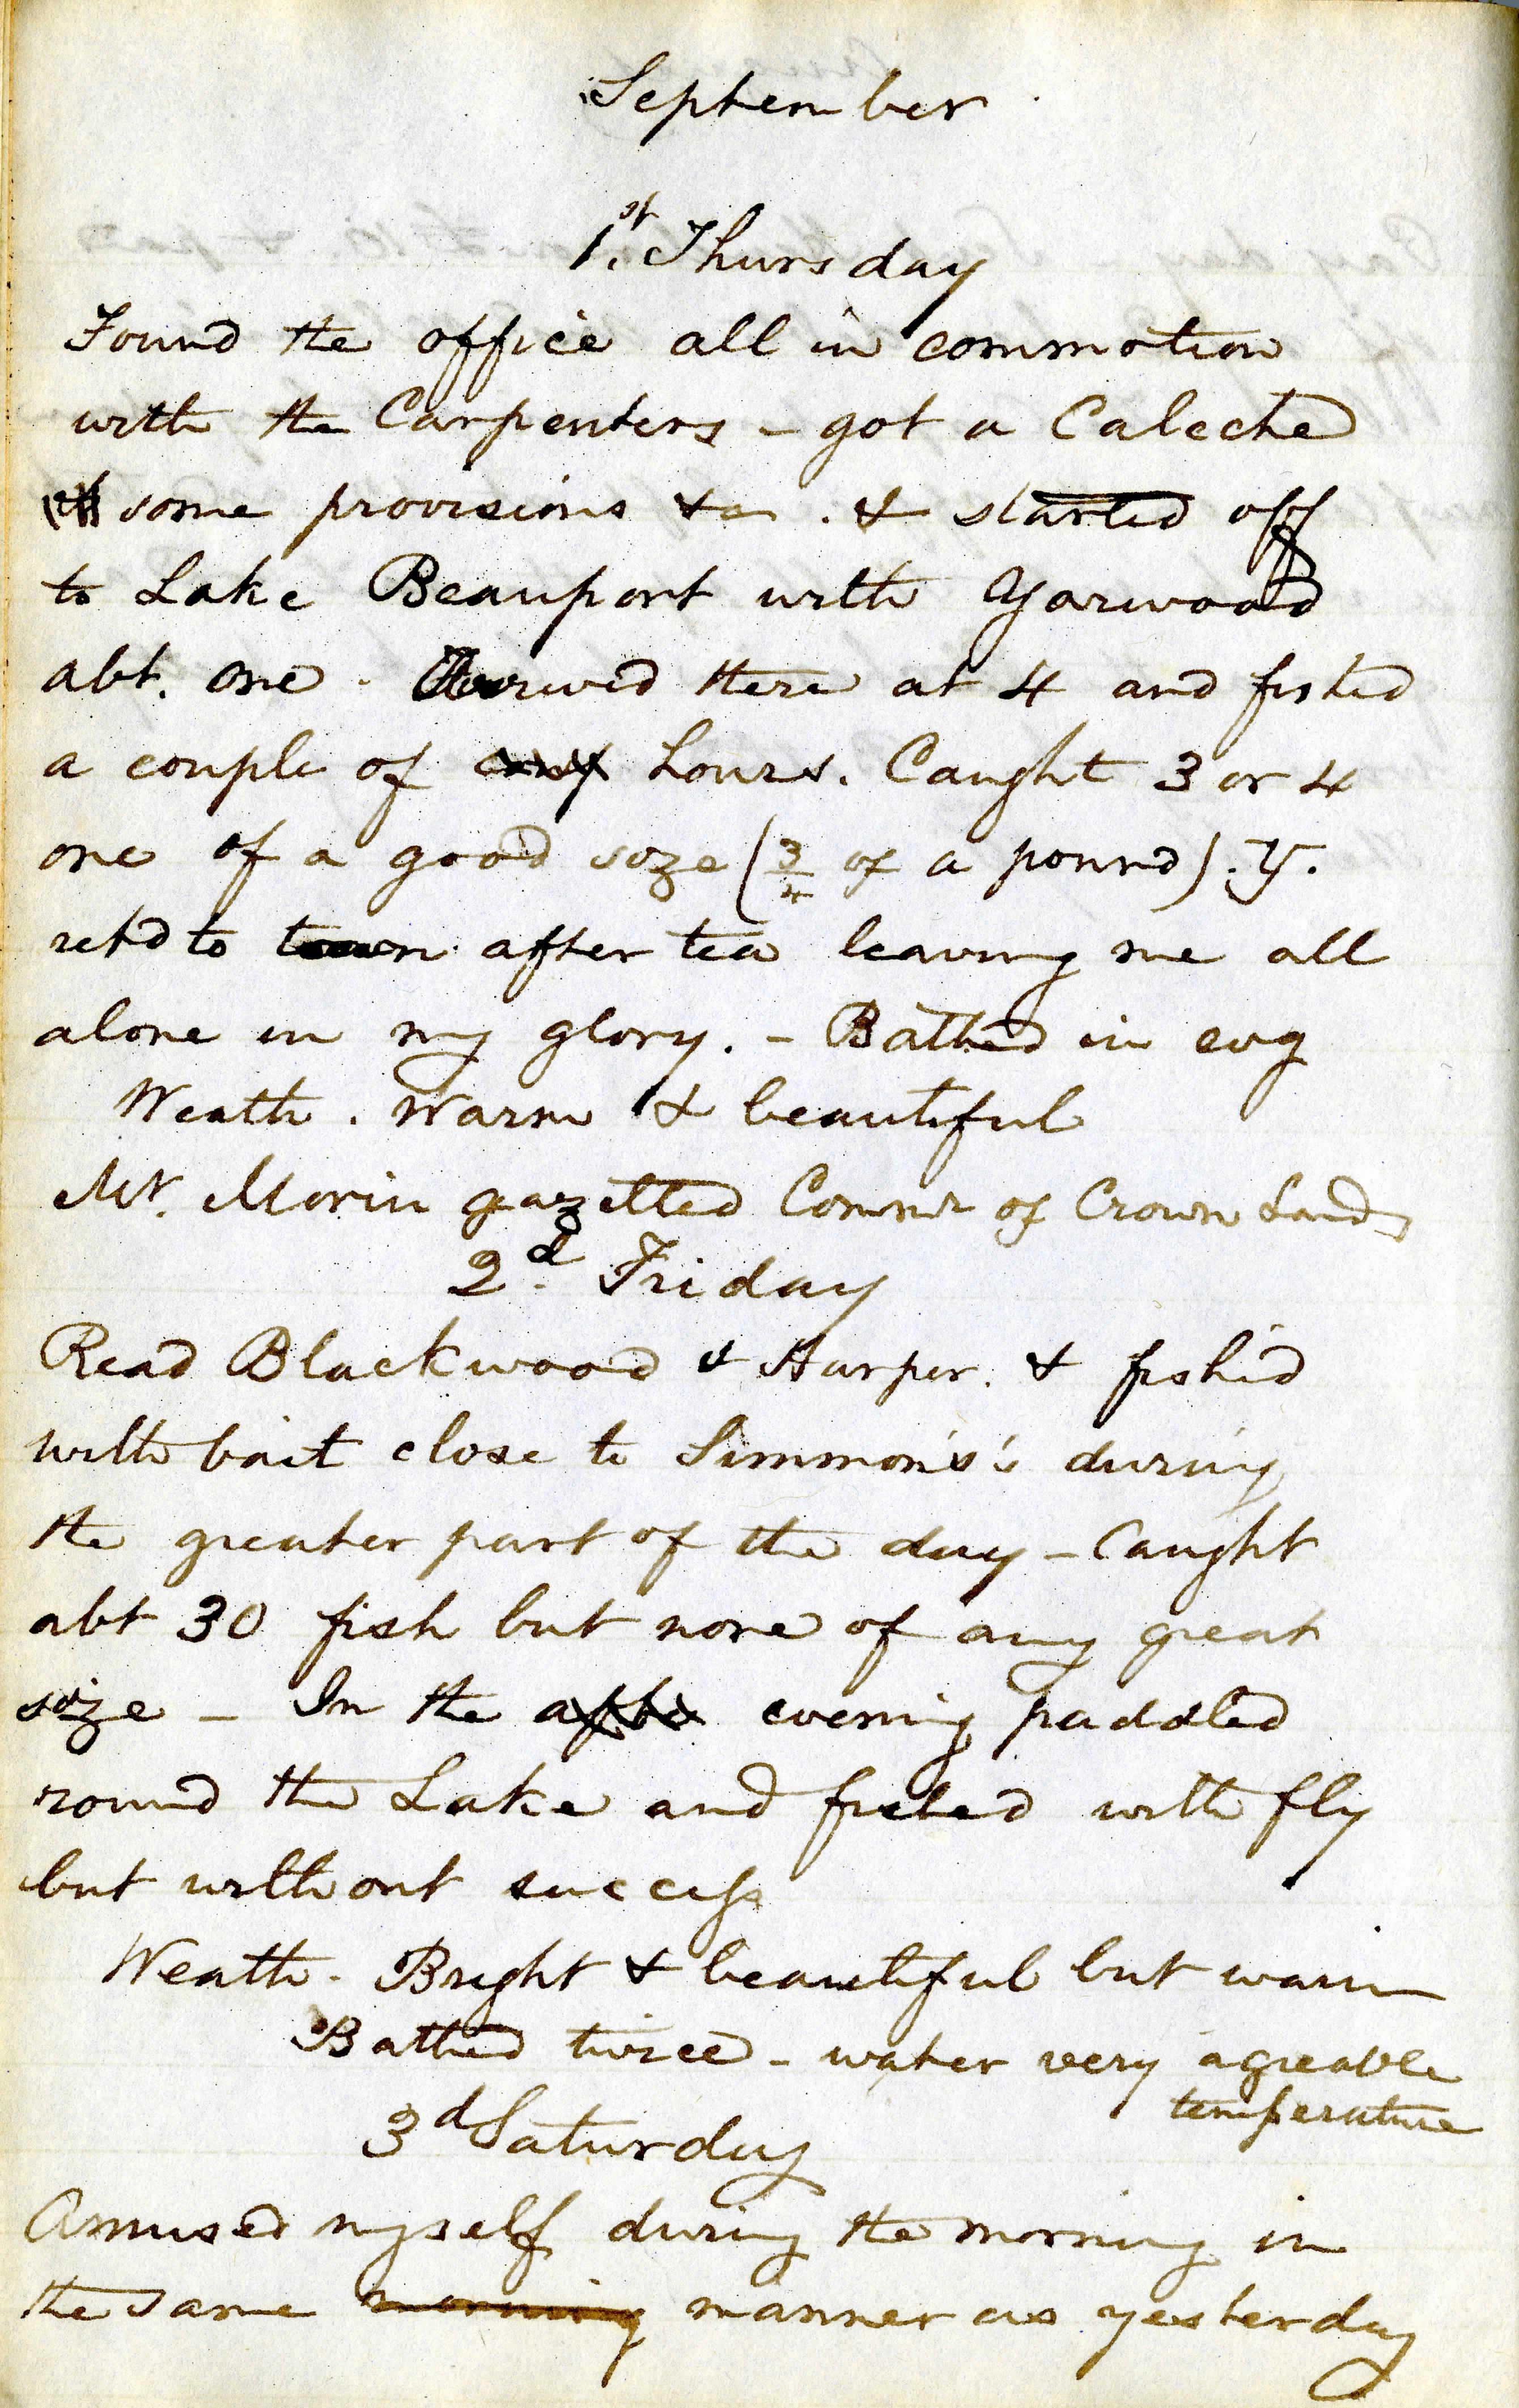 September
1st. Thursday
Found the office all in commotion
with the Carpenters - got a Caleche
some provisions &c. & started off
to Lake Beauport with Yarwood
abt. one. Arrived there at 4 and fished
a couple of hours. Caught 3 or 4
one of a good size (3/4 of a pound). Y.
retd to town after tea leaving me all
alone in my glory. - Bathed in evg
Weath. Warm & beautiful
Mr. Morin gazetted Commr of Crown Lands
2d. Friday
Read Blackwood & Harper. & fished
with bait close to Simmons's during
the greater part of the day - Caught
abt 30 fish but none of any great
size - In the evening paddled
round the Lake and fished with fly
but without success
Weath. Bright & beautiful but warm
Bathed twice - water very agreable
temperature
3d Saturday
Amused myself during the morning in
the same morning manner as yesterday